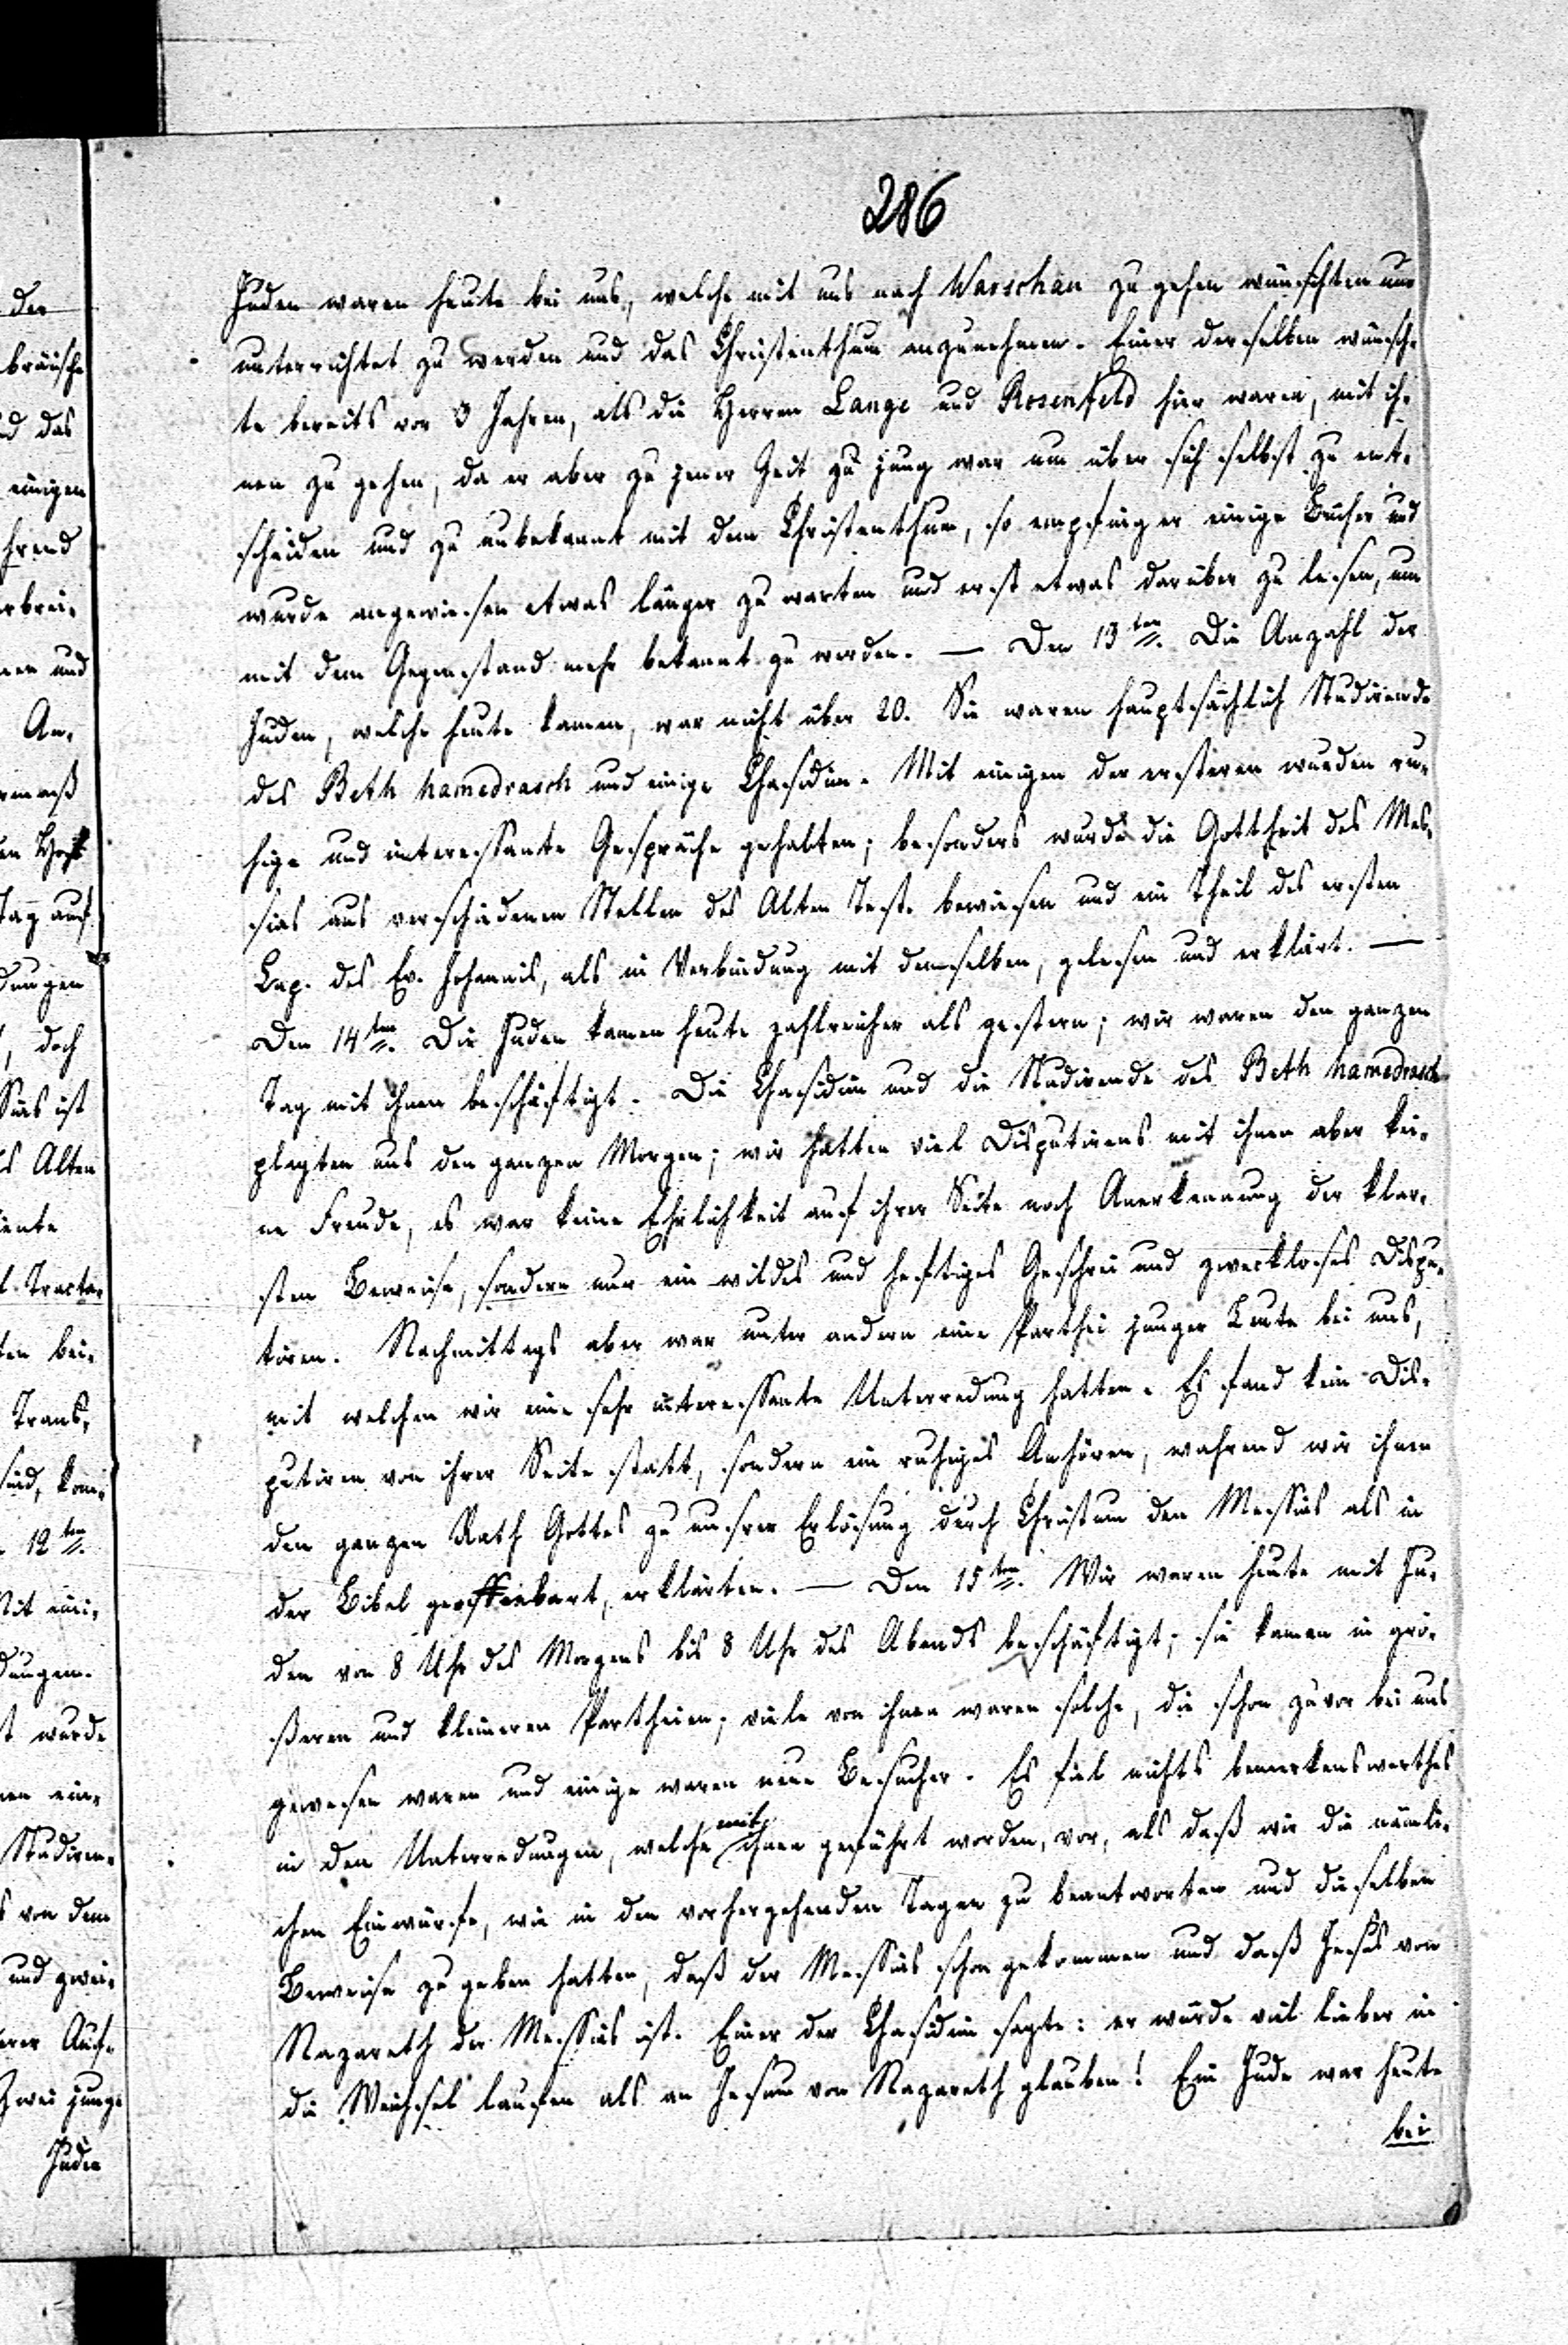 286
Juden waren heute bei uns, welche mit uns nach Warschau zu gehen wünschten um
unterrichtet zu werden und das Christenthum anzunehmen. Einer derselben wünsch-
te bereits vor 3 Jahren, als die Herren Lange und Rosenfeld hier waren, mit ih-
nen zu gehen, da er aber zu jener Zeit zu jung war um über sich selbst zu ent-
scheiden und zu unbekannt mit dem Christenthum, so empfing er einige Bücher und
wurde angewiesen etwas länger zu warten und erst etwas darüber zu lesen, um
mit dem Gegenstand mehr bekannt zu werden. — Den 13ten. Die Anzahl der
Juden, welche heute kamen, war nicht über 20. Sie waren hauptsächlich Studirende
des Beth hamedrasch und einige Chasidim. Mit einigen der ersteren wurden ru-
hige und interessante Gespräche gehalten; besonders wurde die Gottheit des Mes-
sias aus verschiedenen Stellen des Alten Test. bewiesen und ein Theil des ersten
Cap. des Ev. Johannis, als in Verbindung mit demselben, gelesen und erklärt. —
Den 14ten. Die Juden kamen heute zahlreicher als gestern; wir waren den ganzen
Tag mit ihnen beschäftigt. Die Chasidim und die Studirende des Beth hamedrasch
plagten uns den ganzen Morgen; wir hatten viel Disputirens mit ihnen aber kei-
ne Freude, es war keine Ehrlichkeit auf ihrer Seite noch Anerkennung der klar-
sten Beweise, sondern nur ein wildes und heftiges Geschrei und zweckloses Dispu-
tiren. Nachmittags aber war unter andern eine Parthei junger Leute bei uns,
mit welchen wir eine sehr interessante Unterredung hatten. Es fand kein Dis-
putiren von ihrer Seite statt, sondern ein ruhiges Anhören, während wir ihnen
den ganzen Rath Gottes zu unsrer Erlösung durch Christum den Messias als in
der Bibel geoffenbart, erklärten. — Den 15ten. Wir waren heute mit Ju-
den von 8 Uhr des Morgens bis 8 Uhr des Abends beschäftigt; sie kamen in grö-
ßeren und kleineren Partheien; viele von ihnen waren solche, die schon zuvor bei uns
gewesen waren und einige waren neue Besucher. Es fiel nichts bemerkenswerthes
in den Unterredungen, welche mit ihnen geführt worden, vor, als daß wir die nämli-
chen Einwürfe, wie in den vorhergehenden Tagen zu beantworten und dieselben
Beweise zu geben hatten, daß der Messias schon gekommen und daß Jesus von
Nazareth der Messias ist. Einer der Chasidim sagte: er würde viel lieber in
die Weichsel laufen als an Jesum von Nazareth glauben! Ein Jude war heute
bei